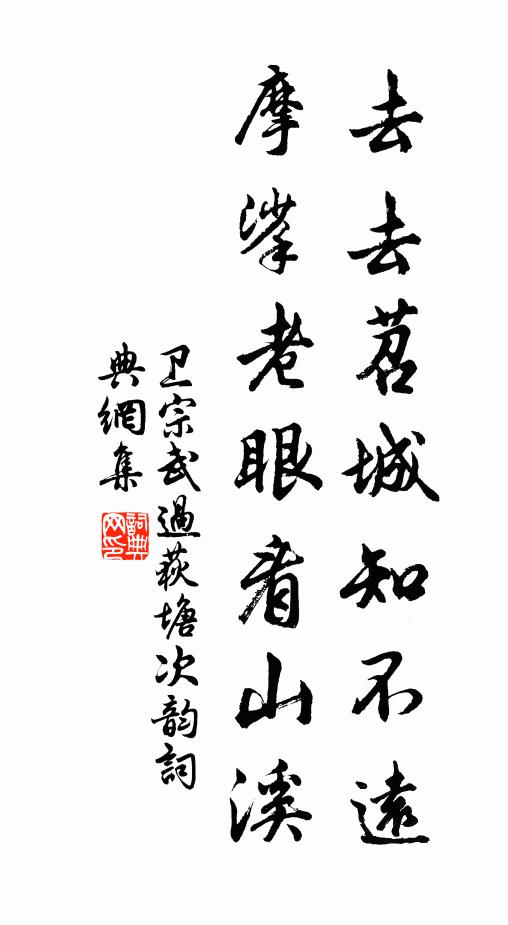 去去苕城知不遠
摩挲老眼看山溪
卫宗武過荻塘次韵詞
典網集
詞典
网印